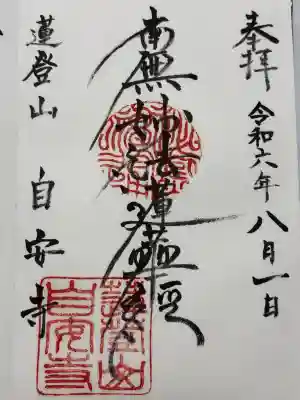 奉拝 令和六年八月一日
南無妙法蓮華経
蓮登山 自安寺
蓮登山
自安寺